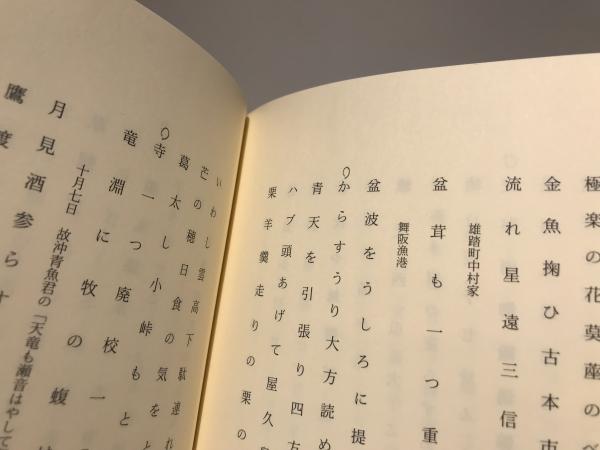 極楽の花茣蓙のべ
金魚掬ひ古本市
流れ星遠三信
雄踏町中村家
盆茸も一つ重
舞阪漁港
盆波をうしろに提
からすうり大方読め
青天を引張り四方
ハブ頭あげて屋久
栗羊羹走りの栗の
いわし雲高下駄連れ
芒の穂日食の気を
葛太し小峠もと
寺一つ廃校一
竜淵に牧の蝮
十月七日 故沖青魚君の「天竜も瀬音はやして
月見酒参らす
鷹渡